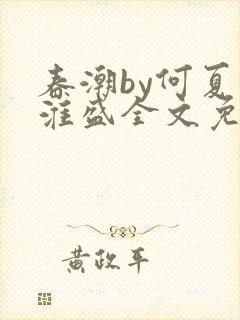 春潮by何夏
淮盛全文免
黄政平